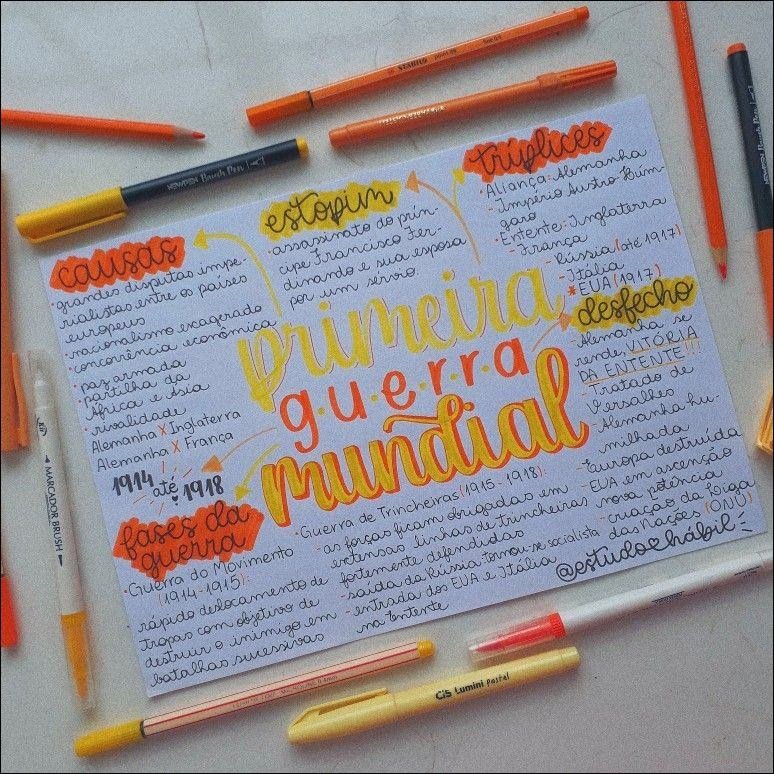 causas
• grandes disputas impe-
rialistas entre os países
europeus
• nacionalismo exagerado
• concorrência econômica
• paz armada
• partilha da
África e Ásia
• rivalidade
Alemanha X Inglaterra
Alemanha X França
1914
até
1918
estopim
• assassinato do prín-
cipe Francisco Fer-
dinando e sua esposa
por um sérvio.
tríplices
• Aliança: Alemanha
- Império Austro-Hún-
garo
• Entente: Inglaterra
- França
- Rússia (até 1917)
- Itália
* EUA (1917)
primeira
guerra
mundial
desfecho
• Alemanha se
rende, VITÓRIA
DA ENTENTE!!!
- Tratado de
Versalhes
- Alemanha hu-
milhada
- Europa destruída
- EUA em ascenção
nova potência
- criação da Liga
das Nações (ONU)
fases da
guerra
• Guerra do Movimento
(1914-1915):
- rápido deslocamento de
tropas com objetivo de
destruir o inimigo em
batalhas sucessivas
• Guerra de Trincheiras (1915-1918):
- as forças ficam obrigadas em
extensas linhas de trincheiras
fortemente defendidas
- saída da Rússia: tornou-se socialista
- entrada dos EUA e Itália
na Entente
@estudohábil
STABILO point 88
NEWPEN Brush Pen
MARCADOR BRUSH
CiS Lumini Pastel